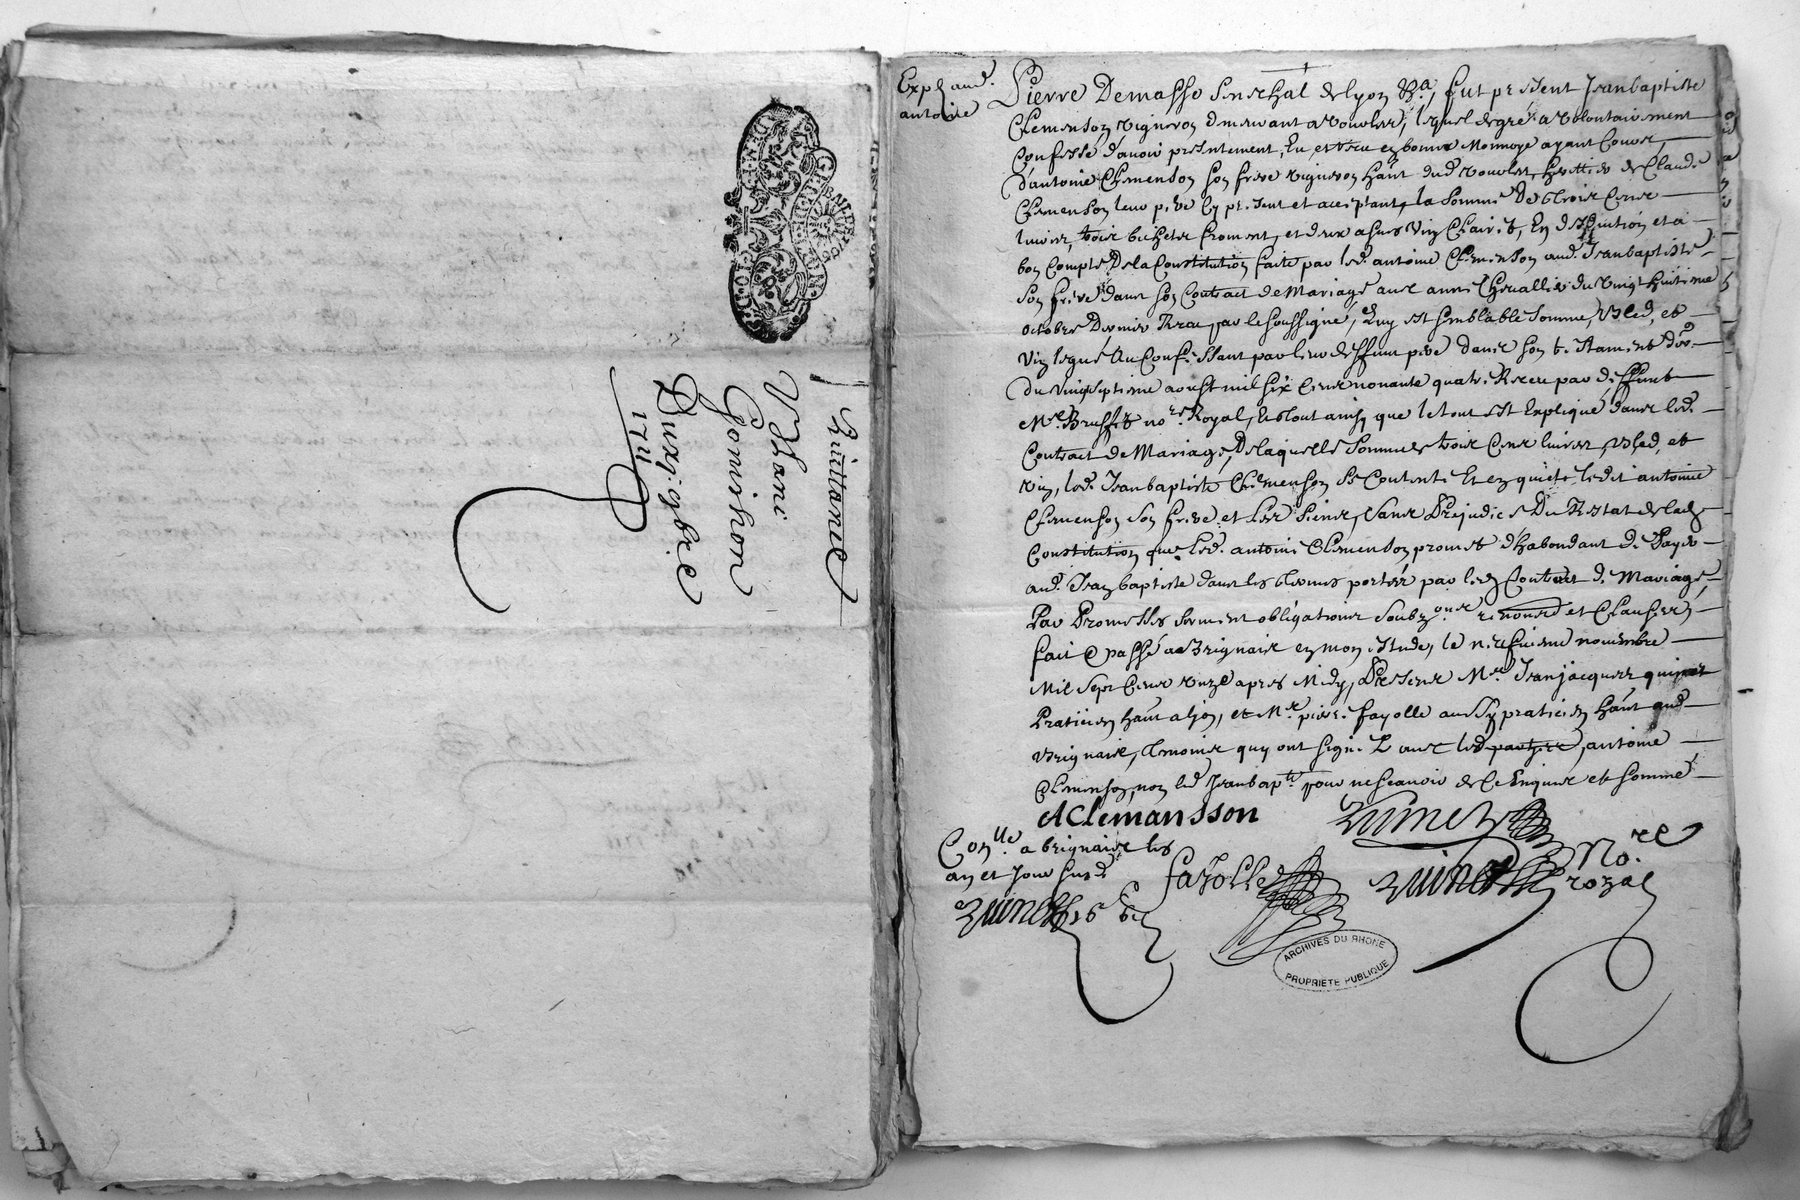 GNALITE DE LYON
Quittance
Vzhani
Gonichon
Du xj: xbre
1711
Exp.é aud.
antoine
Pierre Demasso Seneschal de lyon &.a, fut present Jeanbaptiste
Clemenson vigneron demeurant a vourles, lequel de gré a volontairement
Confessé d'avoir presentement, Eu et receu en bonne Monnoye ayant Cours,
d'antoine Clemenson son frere vigneron hãnt dud. vourles, heritier de Claude
Clemenson leur pere Cy present et acceptant, la somme De trois Cens
livres, trois bichets froment, et deux asnées vin Clairet, En deduction et a
bon Compte De la Constitution faite par led. antoine Clemenson aud. Jeanbaptiste
son frere dans son Contract de Mariage avec anne Chevallier du vingt huitieme
octobre Dernier Receu par le soussigné, Quy est semblable somme, Bled, et
vin legué Au Confessant par leur deffunt pere dans son testament dud.
du vingt septieme aoust mil six Cens nonante quatre Receu par deffunt
Me. Brossete no.re Royal, Et tout ainsy que le tout est Expliqué dans led.
Contract de Mariage, De laquelle somme de trois Cens livres, Bled, et
vin, led. Jeanbaptiste Clemenson se Contente Et en quitte ledit antoine
Clemenson son frere et les siens, sans Prejudice Du Restat de lad.
Constitution que led. antoine Clemenson promet d'habondant de Payer
aud. Jeanbaptiste dans les termes portés par led. Contract de Mariage,
Par Promesses serment obligations soubz.ons renonc.ons et Clauses,
fait & passé a Brignais en mon Etude, le neufvieme novembre
Mil Sept Cens onze apres Midy, Presens Me. Jeanjacques quinet
Praticien hãnt a lyon, et Me. pierre fayolle aussy praticien hãnt aud.
Brignais, temoins quy ont signé avec led. parties, antoine
Clemenson, non led. Jeanbap.te pour ne scavoir de Ce Enquis et sommé
A Clemansson
quinet
Con.lle a brignais les
an et jour susd.
fayolle
quinet
No.re
royal
quinet
ARCHIVES DU RHONE
PROPRIETE PUBLIQUE